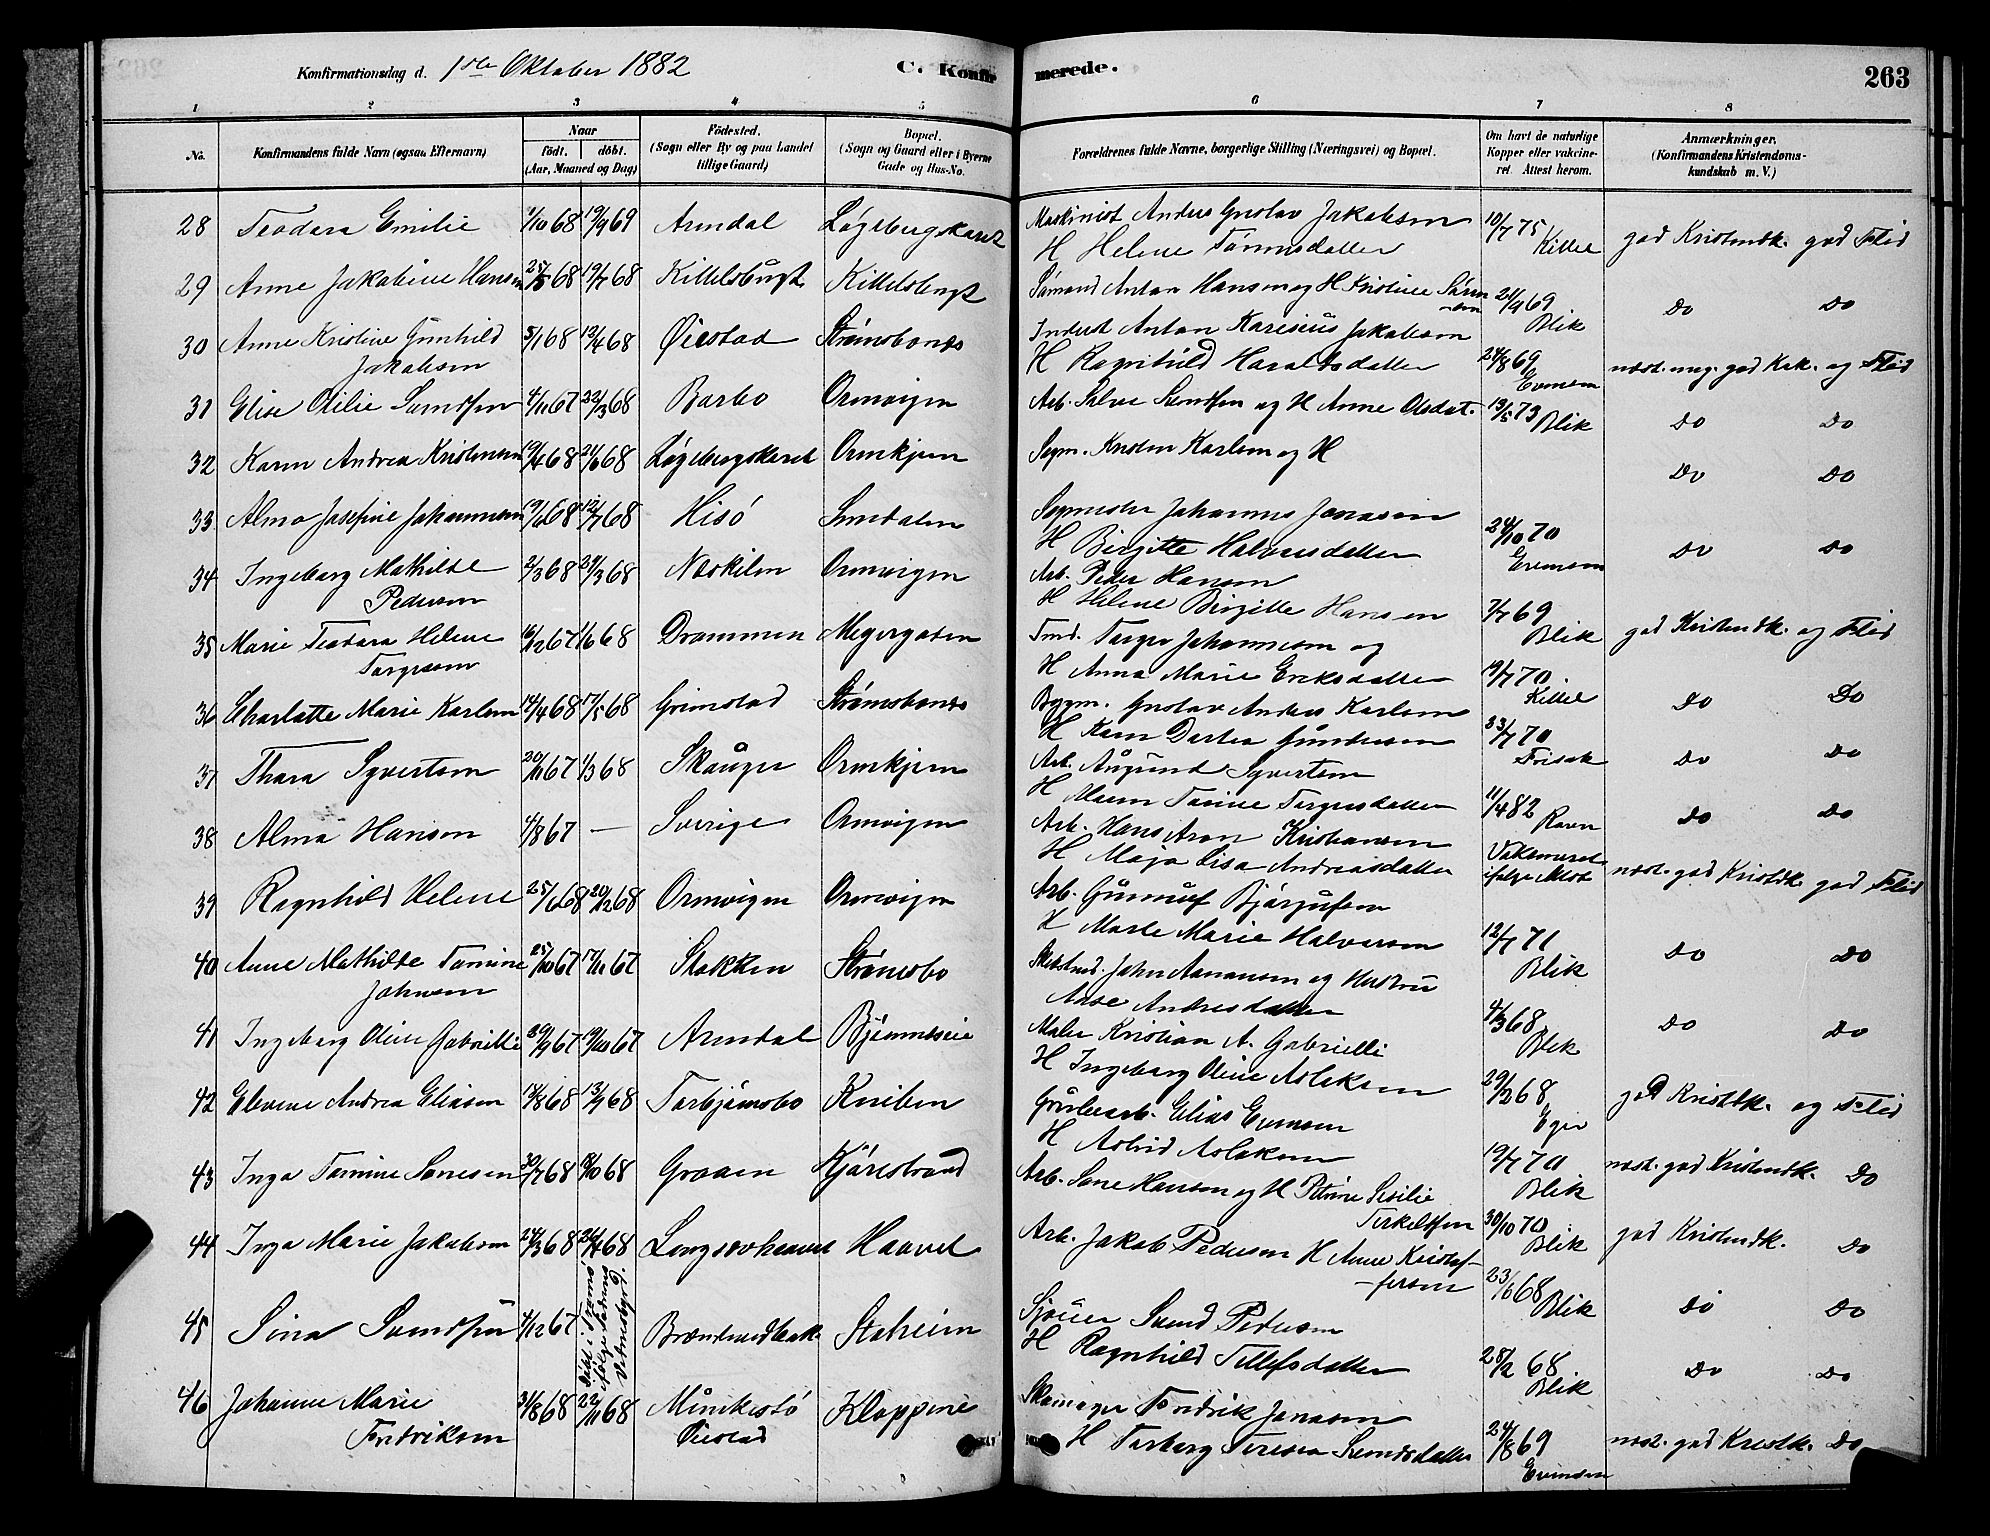 Konfirmationsdag d. 1ste Oktober 1882 C. Konfir merede. 263
1 2 3 4 5 6 7 8
No. Konfirmandens fulde Navn (ogsaa Efternavn) Naar født. døbt. (Aar, Maaned og Dag) Fødested. (Sogn eller By og paa Landet tillige Gaard) Bopæl. (Sogn og Gaard eller i Byerne Gade og Hus-No. Forældrenes fulde Navne, borgerlige Stilling (Næringsvei) og Bopæl. Om havt de naturlige Kopper eller vakcineret. Attest herom. Anmærkninger. (Konfirmandens Kristendomskundskab m. V.)
28 Teodora Emilie 1/10 68 19/9 69 Arendal Løgebergskaret Maskinist Anders Gustav Jakobsen 10/7 75 Kittel god Kristendk. god Flid
H Helene Tønnesdatter
29 Anne Jakobine Hansen 25/5 68 19/7 68 Kittelsbugt Kittelsbugt Sømand Anton Hansen og H Kristine Sørensen 21/9 69 Blik Do Do
30 Anne Kristine Gunhild Jakobsen 5/1 68 12/4 68 Øiestad Strømsbonæs Inderst Anton Karesius Jakobsen
H Ragnhild Haraldsdatter 24/8 69 Evensen næst. meg. god Krk. og Flid
31 Elise Otilie Svendsen 4/11 67 22/3 68 Barbo Ormvigen Arb. Salve Svendsen og H Anne Olsdat. 13/5 73 Blik Do Do
32 Karen Andrea Kristensen 19/4 68 21/6 68 Løgebergskaret Ormkjern Sagm. Kristen Karlsen og H Do Do
33 Alma Josefine Johannesen 19/6 68 12/7 68 Hisø Smedalen Sagmester Johannes Jonasen
H Birgitte Halvorsdatter 24/10 70 Evensen Do Do
34 Ingeborg Mathilde Pedersen 2/3 68 29/3 68 Næskilen Ormvigen Arb. Peder Hansen
H Helene Birgitte Hansen 7/7 69 Blik god Kristendk. og Flid
35 Marie Teodora Helene Torgersen 16/12 67 1/6 68 Drammen Meyergaden Tmd. Torger Johannesen og
H Anna Marie Eriksdatter 19/7 70 Kittel Do Do
36 Charlotte Marie Karlsen 14/4 68 17/5 68 Grimstad Strømsbonæs Bygm. Gustav Anders Karlsen
H Karn Dortea Gundersen 23/7 70 Frisak Do Do
37 Thora Syvertsen 20/11 67 1/3 68 Skånger Ormkjern Arb. Augund Syvertsen
H Maren Tonine Torgersdatter 11/4 82 Ravn Do Do
38 Alma Hansen 4/8 67 — Sverige Ormvigen Arb. Hans Aron Kristiansen
H Maja Lisa Andreasdatter Vaksineret ifølge Attest næst. god Kristdk. god Flid
39 Ragnhild Helene 25/6 68 20/12 68 Ormvigen Ormvigen Arb. Gunnuf Bjørgufsen
H Marte Marie Halvorsen 12/7 71 Blik Do Do
40 Anne Mathilde Tomine Johnsen 25/10 67 17/11 67 Stokken Strømsbo Skibstmd. John Aanonsen og Hustru
Aase Andresdatter 4/3 68 Blik Do Do
41 Ingeborg Oline Gabrielli 29/9 67 19/10 67 Arendal Bjønneseie Maler Kristian A. Gabrielli
H Ingeborg Oline Aslaksen 29/2 68 Eger god Kristdk. og Flid
42 Elvine Andrea Eliasen 18/8 68 13/9 68 Torbjørnsbo Kniben Grubearb. Elias Evensen
H Astrid Aslaksen 19/7 70 Blik næst. god Kristendk. Do
43 Inga Tomine Sørensen 30/7 68 18/10 68 Graaen Kjørestrand Arb. Søren Hansen og H Petrine Sesilie Terkelsen 30/10 70 Blik god Kristendk. Do
44 Inga Marie Jakobsen 24/3 68 26/4 68 Langsævhaavet Haavet Arb. Jakob Pedersen H Anne Kristoffersen 23/6 68 Blik Do Do
45 Sina Svendsen 4/12 67 Døbt i Tromø ifølge Vidnesbyrd. Brændevidbak. Staheim Sjouer Svend Pedersen
H Ragnhild Tellefsdatter 28/2 68 Blik Do Do
46 Johanne Marie Fredriksen 31/8 68 22/11 68 Munkestø Øiestad Kloppene Skomager Fredrik Jonasen
H Torborg Teresea Svendsdatter 24/8 69 Evensen næst. god Kristk. Do